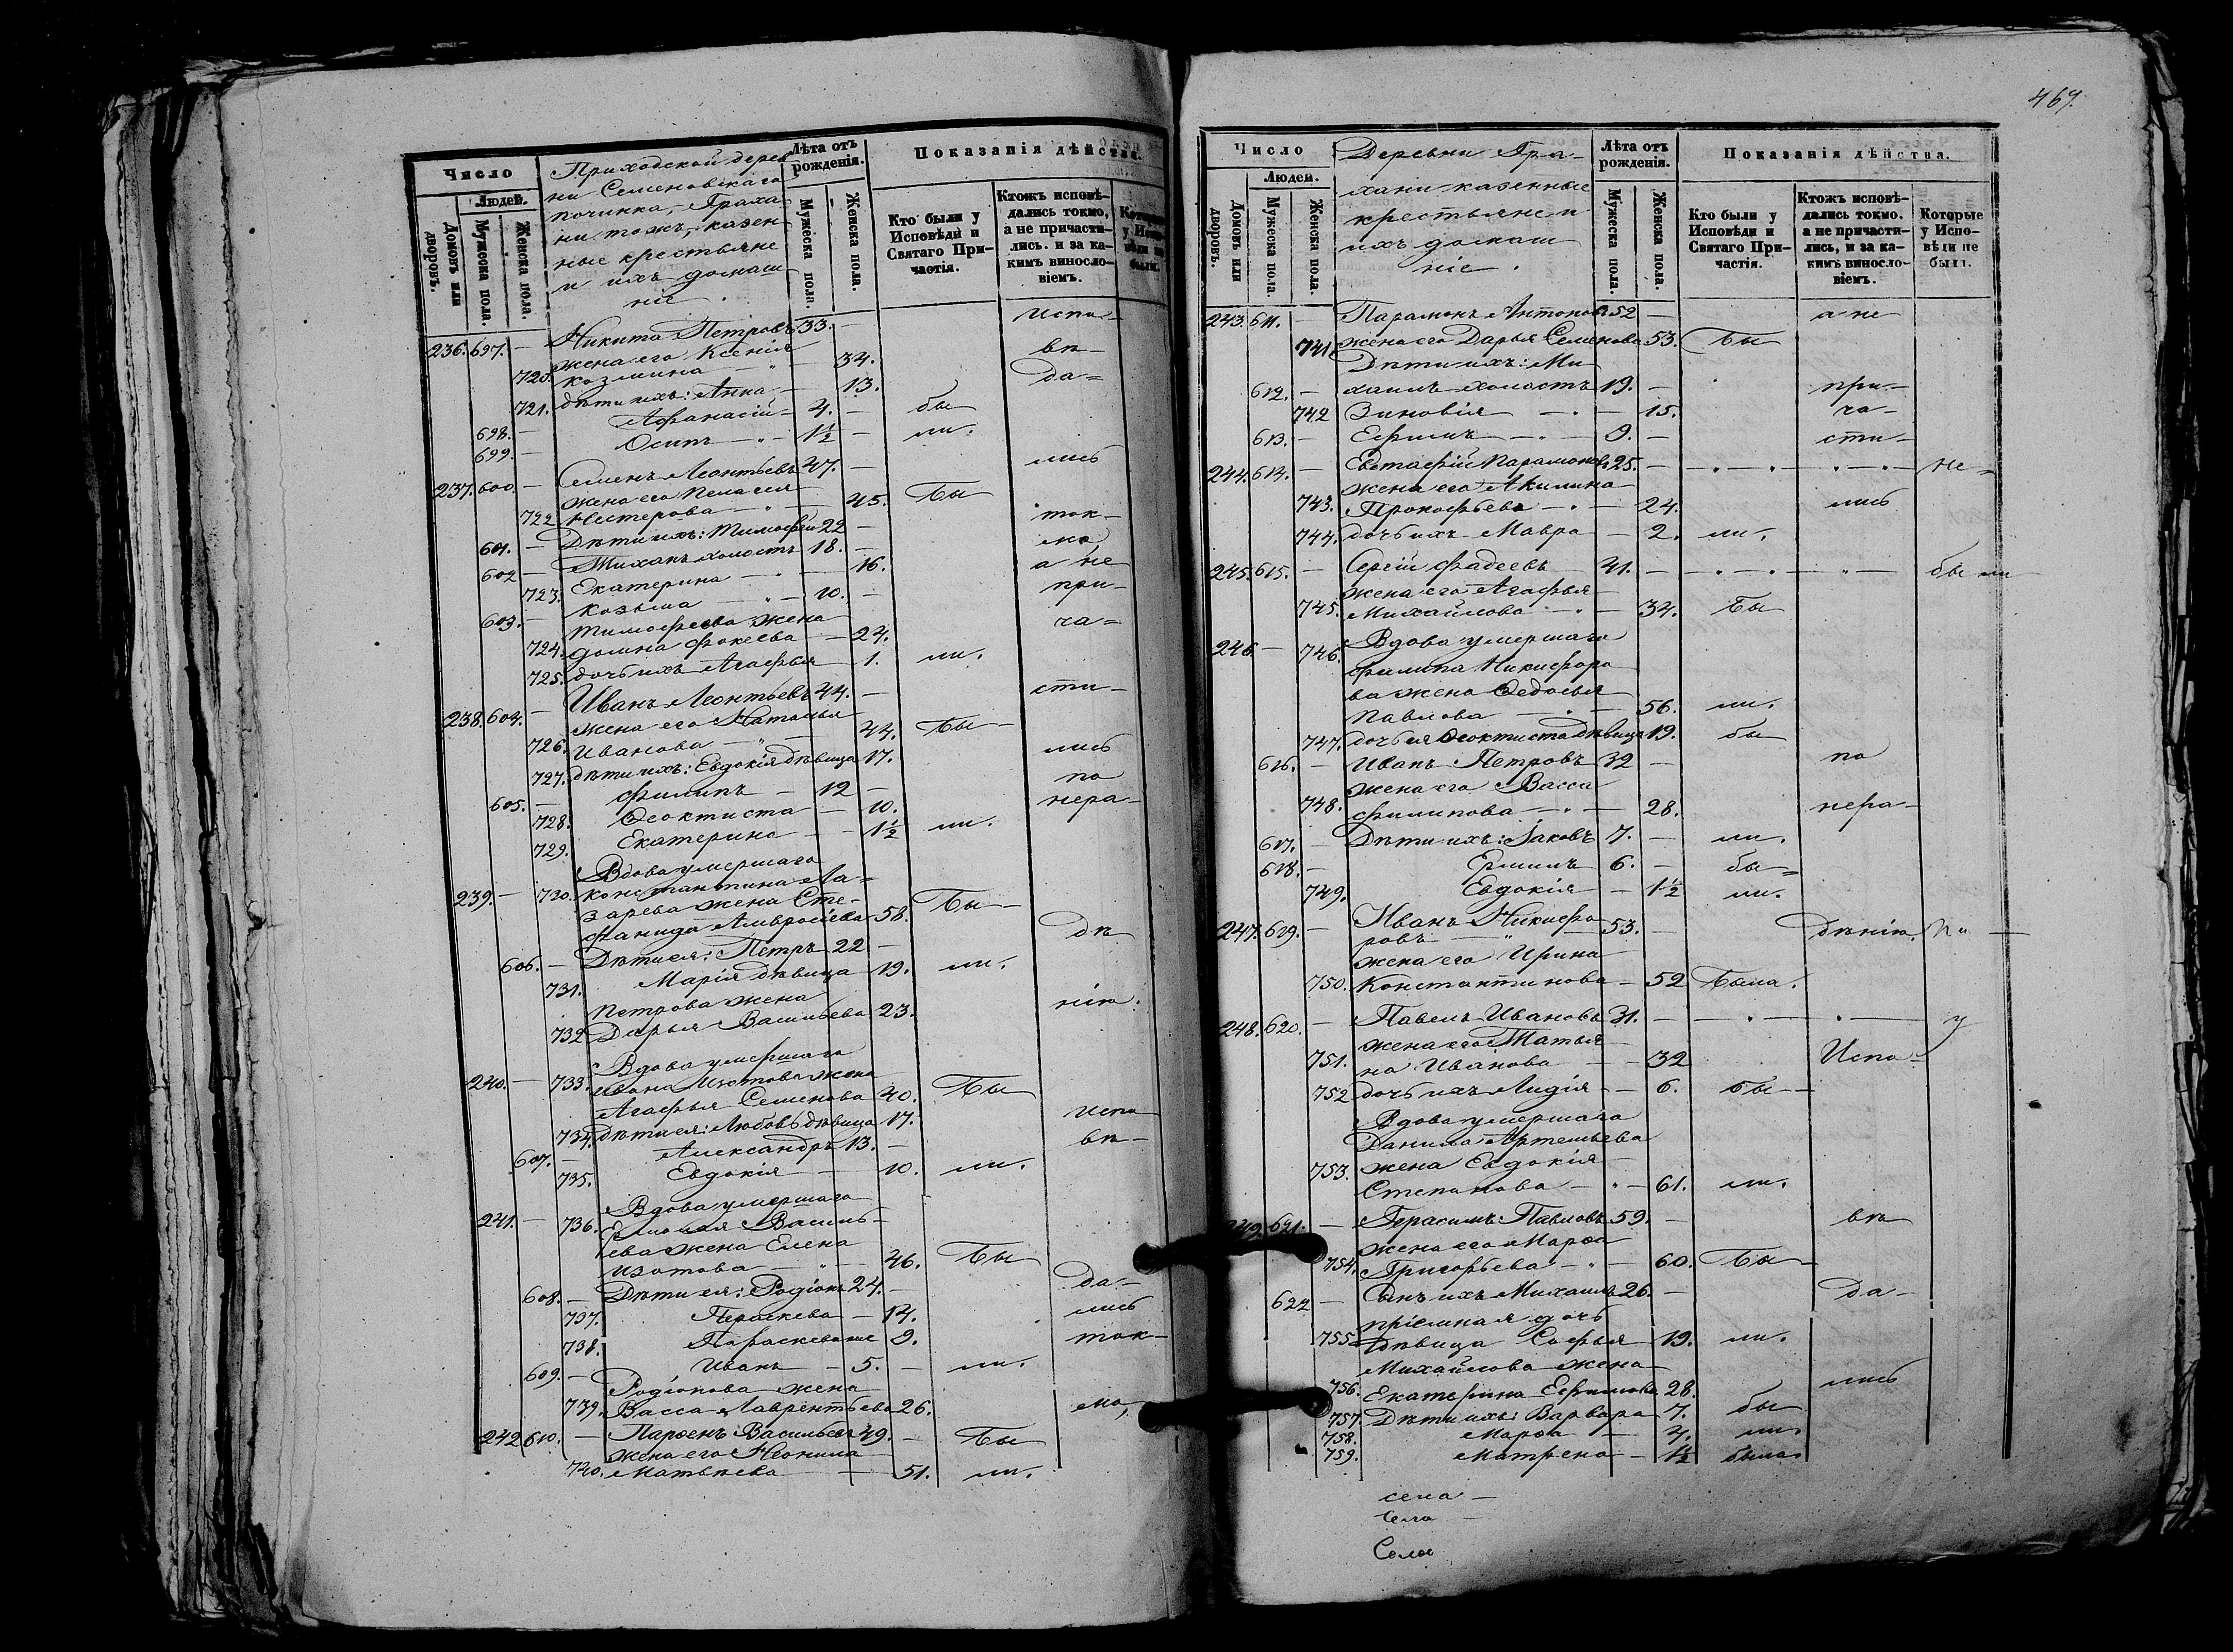 Число
Людей.
Домовъ или дворовъ.
Мужеска пола.
Женска пола.
Приходской дерев
ни Семеновскаго
починка, Граха
ни тожъ, казен
ные крестьяне
и ихъ домаш
ніе.
Лѣта отъ рожденія.
Мужеска пола.
Женска пола.
Показанія дѣйства.
Кто были у Исповѣди и Святаго При-частія.
Ктожъ исповѣ-дались токмо, а не причасти-лись. и за ка-кимъ виносло-віемъ.
236. 697. — Никита Петровъ 33. — испо-
жена его Ксенія
720. Козмина — 34. вѣ-
721. дѣти ихъ: Анна — 13. да-
698. — Афанасій — 4. — бы
699. — Осипъ — 1½ — ли.
237. 600. — Семенъ Леонтьевъ 47. — лись
жена его Пелагея
722. Нестерова — 45. Бы
601. — Дѣти ихъ: Тимофей 22 — ток-
602 — Тихонъ холостъ 18. — мо
723. Екатерина — 16. а не
603. — Козьма — 10. — при-
Тимофеева жена
724. Домна Фокеева — 24. ча-
725. дочь ихъ Агафья — 1. ли.
238. 604. — Иванъ Леонтьевъ 44. — сти-
жена его Наталья
726. Иванова — 44. Бы
727. дѣти ихъ: Евдокія дѣвица 17. лись
605. — Филипъ — 12 — по
728. Феоктиста — 10. нера-
729. Екатерина — 1½ ли.
Вдова умершаго
239. — 730. Константина Ла-
зарева жена Сте-
фанида Амвросіева 58. Бы-
606. — Дѣти ея: Петръ 22 — дѣ
731. Марія дѣвица 19. ли.
Петрова жена
732 Дарья Васильева 23. нію.
Вдова умершаго
240. — 733. Ивана Изотова жена
Агафья Семенова 40. Бы
734. дѣти ея: Любовь дѣвица 17. испо
607. — Александръ 13. — вѣ-
735. Евдокія — 10. ли.
Вдова умершаго
241. — 736. Ермолая Василь-
ева жена Елена
Изотова — 46. Бы
608. — Дѣти ея: Родіонъ 24. — да-
737. Параскева — 14. лись
738. Параскева же 9. ток-
609. — Иванъ — 5. — ли.
Родіонова жена
739. Васса Лаврентьева 26. мо,
242 610. — Парѳенъ Васильевъ 49. — Бы
жена его Неонила
740. Матвѣева — 51. ли.
469.
Число
Людей.
Домовъ или дворовъ.
Мужеска пола.
Женска пола.
Деревни Гра-
хани казенные
крестьяне и
ихъ домаш
ніе.
Лѣта отъ рожденія.
Мужеска пола.
Женска пола.
Показанія дѣйства.
Кто были у Исповѣди и Святаго При-частія.
Ктожъ исповѣ-дались токмо. а не причасти-лись, и за ка-кимъ виносло-віемъ.
Которые у Испо-вѣди не были.
243. 611. — Парамонъ Антоновъ 52 — а не
741. жена его Дарья Семенова 53. Бы
Дѣти ихъ: Ми
612. — хаилъ холостъ 19. — при-
742 Зиновія — 15. ча-
613. — Ефимъ — 9. — сти-
244. 614. — Евстафій Парамоновъ 25. — не-
жена его Акилина
743. Прокофьева — 24. лись
744. дочь ихъ Мавра — 2. ли.
245. 615. — Сергій Фадеевъ 41. — были
жена его Агафья
745. Михайлова — 34. Бы
246 — 746. Вдова умершаго
Филипа Никифоро
ва жена Федосья
Павлова — 56. ли.
747. дочь ея Феоктиста дѣвица 19. бы
616. — Иванъ Петровъ 32 — по
жена его Васса
748. Филипова — 28. нера-
617. — Дѣти ихъ: Іаковъ 7. — ли.
618. — Ермилъ 6. — бы-
749. Евдокія — 1½ ли.
247. 619. — Иванъ Никифо
ровъ — 53. — дѣнію.
жена его Ирина
750. Константинова — 52 Была.
248. 620. — Павелъ Ивановъ 31. — у
жена его Татья
751. на Иванова — 32 Испо
752 дочь ихъ Лидія — 6. бы-
Вдова умершаго
Данила Артемьева
753. жена Евдокія
Степанова — 61. ли.
249. 621. — Герасимъ Павловъ 59. — вѣ
жена его Марѳа
754. Григорьева — 60. Бы-
622 — Сынъ ихъ Михаилъ 26. — да-
пріемная дочь
755. дѣвица Софья — 19. ли.
Михайлова жена
756. Екатерина Ефимова 28. лись
757. Дѣти ихъ: Варвара 7. бы
758. Марѳа — 4. ли.
759. Матрена — 1½ была.
села —
Села